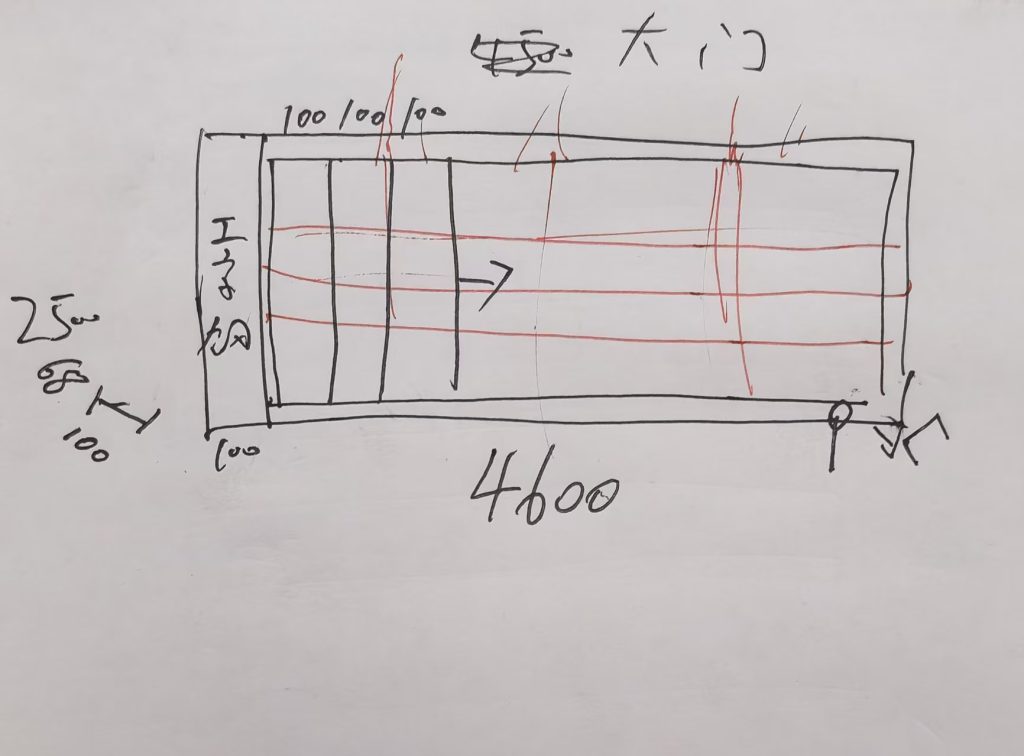 大门
100 100 100
工字钢
2500
68
100
100
4600